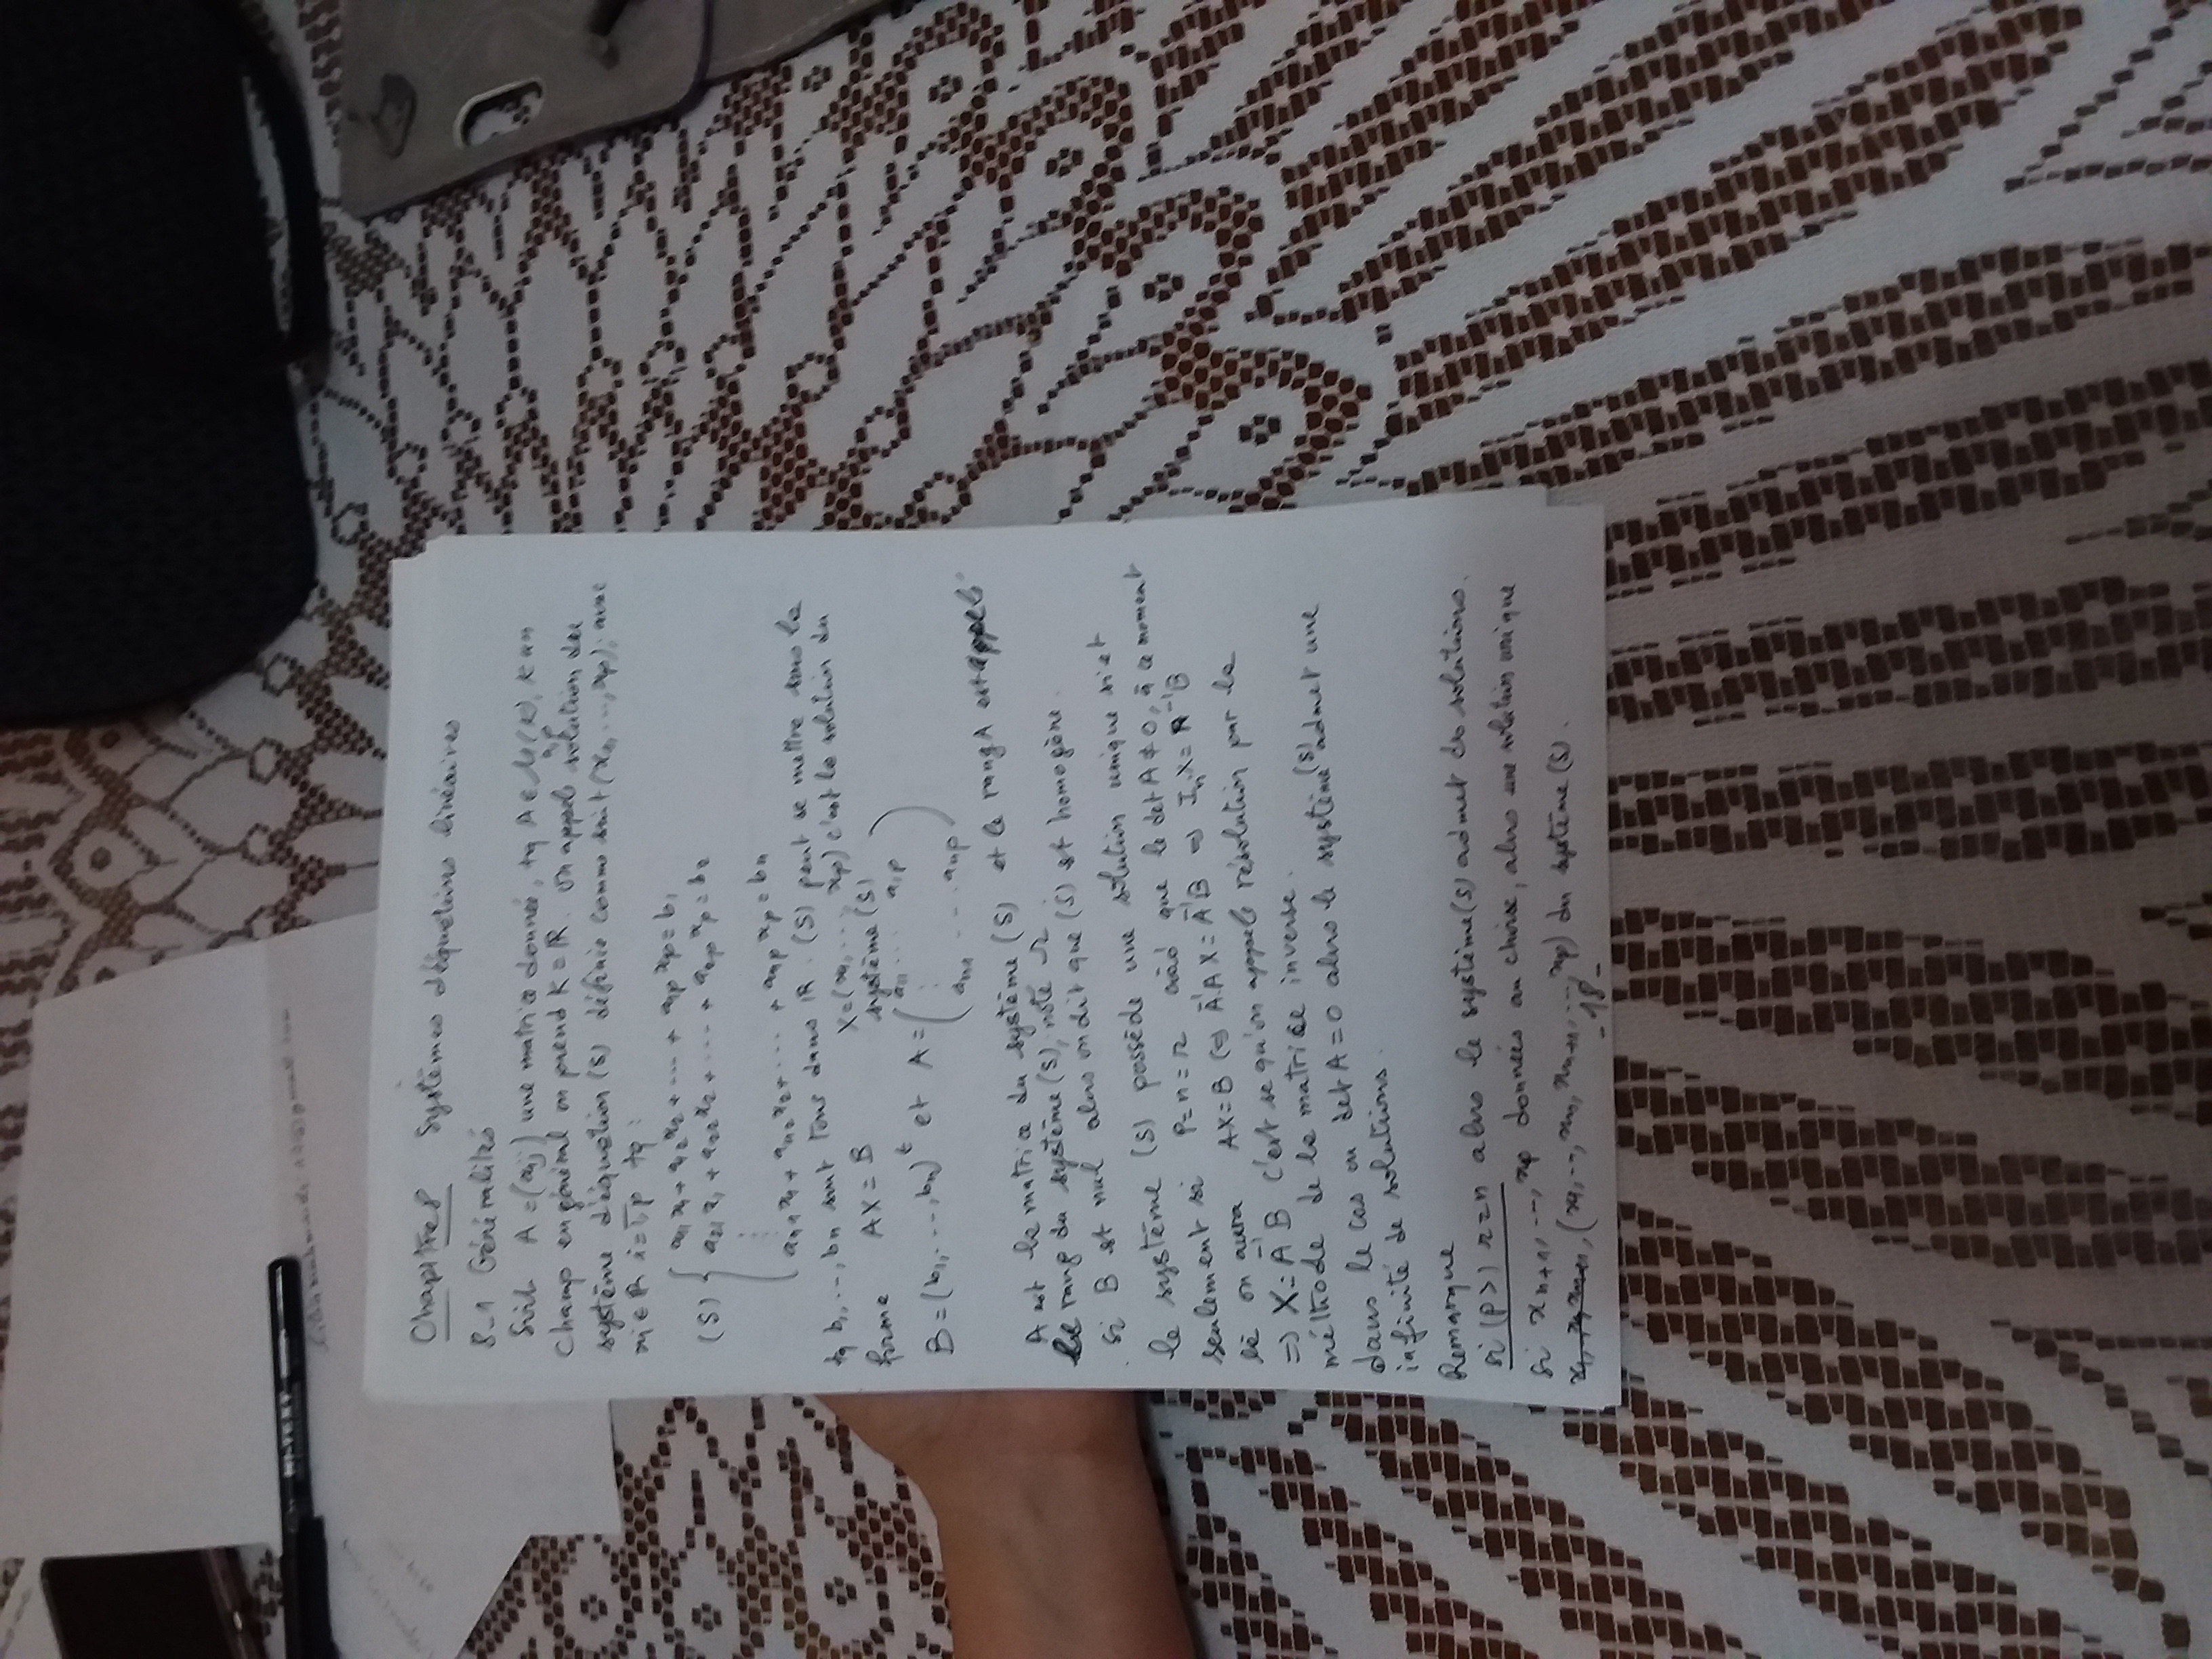 Chapitre 8 Systèmes d'équations linéaires
8-1 Généralités
Soit A=(aij) une matrice donnée, tq A∈M(K), K un
n,p
champ en général on prend K=IR. on appel solution du
système d'équation (S) définie comme suit (x1,...,xp); avec
xi∈IR i=1,p tq:
(S) { a11x1 + a12x2 + ... + a1p xp = b1
a21x1 + a22x2 + ... + a2p xp = b2
an1x1 + an2x2 + ... + anp xp = bn
tq b1,...,bn sont tous dans IR. (S) peut se mettre sous la
forme AX=B X=(x1,... xp) c'est la solution du
système (S)
B=(b1,...,bn)t et A=( a11 ... a1p
an1 ... anp )
A est la matrice du système (S) et le rang A est appelé
le rang du système (S), noté r
si B est nul alors on dit que (S) est homogène.
le système (S) possède une solution unique si et
seulement si p=n=r càd que le det A≠0, à ce moment
là on aura AX=B ⇔ A-1AX=A-1B ⇒ In.X=A-1B
⇒ X=A-1B c'est se qu'on appel résolution par la
méthode de la matrice inverse.
dans le cas ou det A=0 alors le système (S) admet une
infinité de solutions.
Remarque
si (p>) r=n alors le système(s) admet des solutions.
si xn+1,..., xp données au choix, alors une solution unique
(x1,..., xn, xn+1,..., xp) du système (S).
-18-